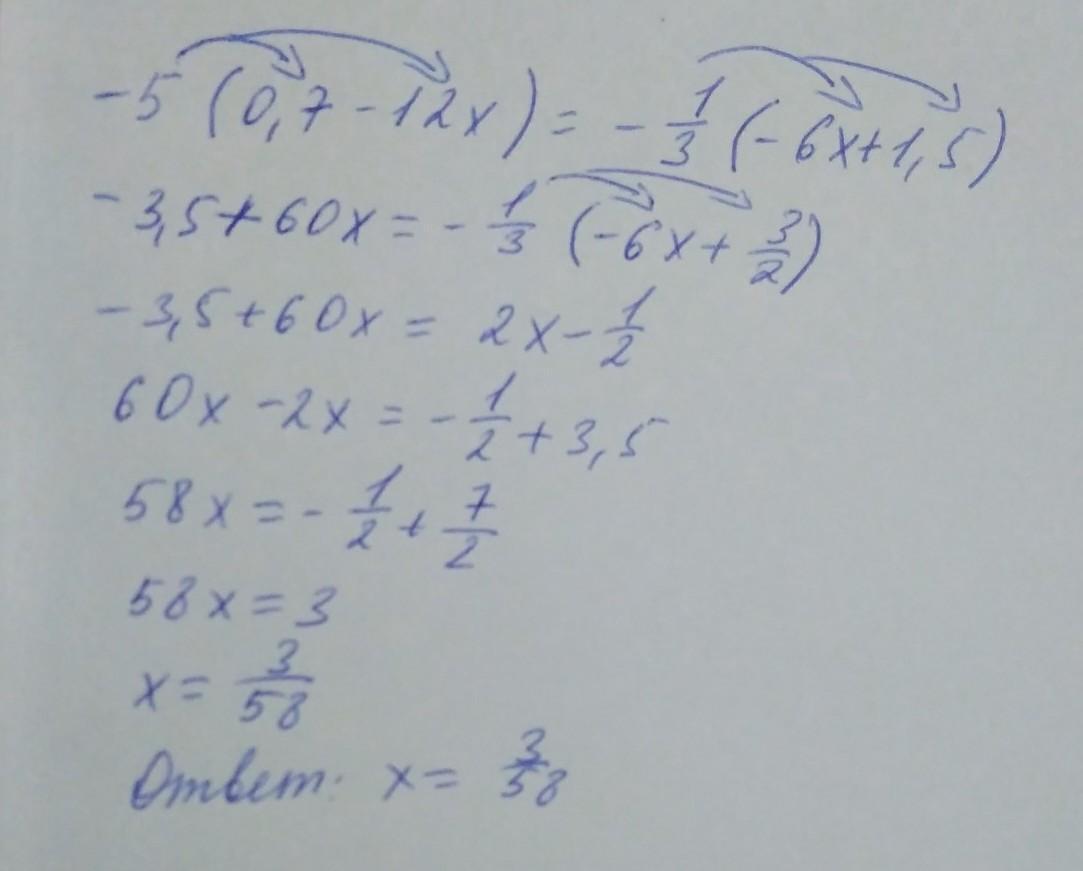 -5 (0,7 - 12x) = - 1/3 (-6x + 1,5)
-3,5 + 60x = - 1/3 (-6x + 3/2)
-3,5 + 60x = 2x - 1/2
60x - 2x = - 1/2 + 3,5
58x = - 1/2 + 7/2
58x = 3
x = 3/58
Ответ: x = 3/58